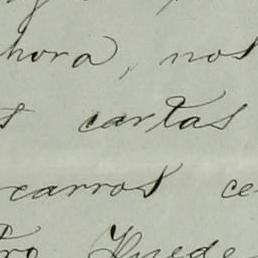 hora, nos
s cartas
carros ce
tro Puede